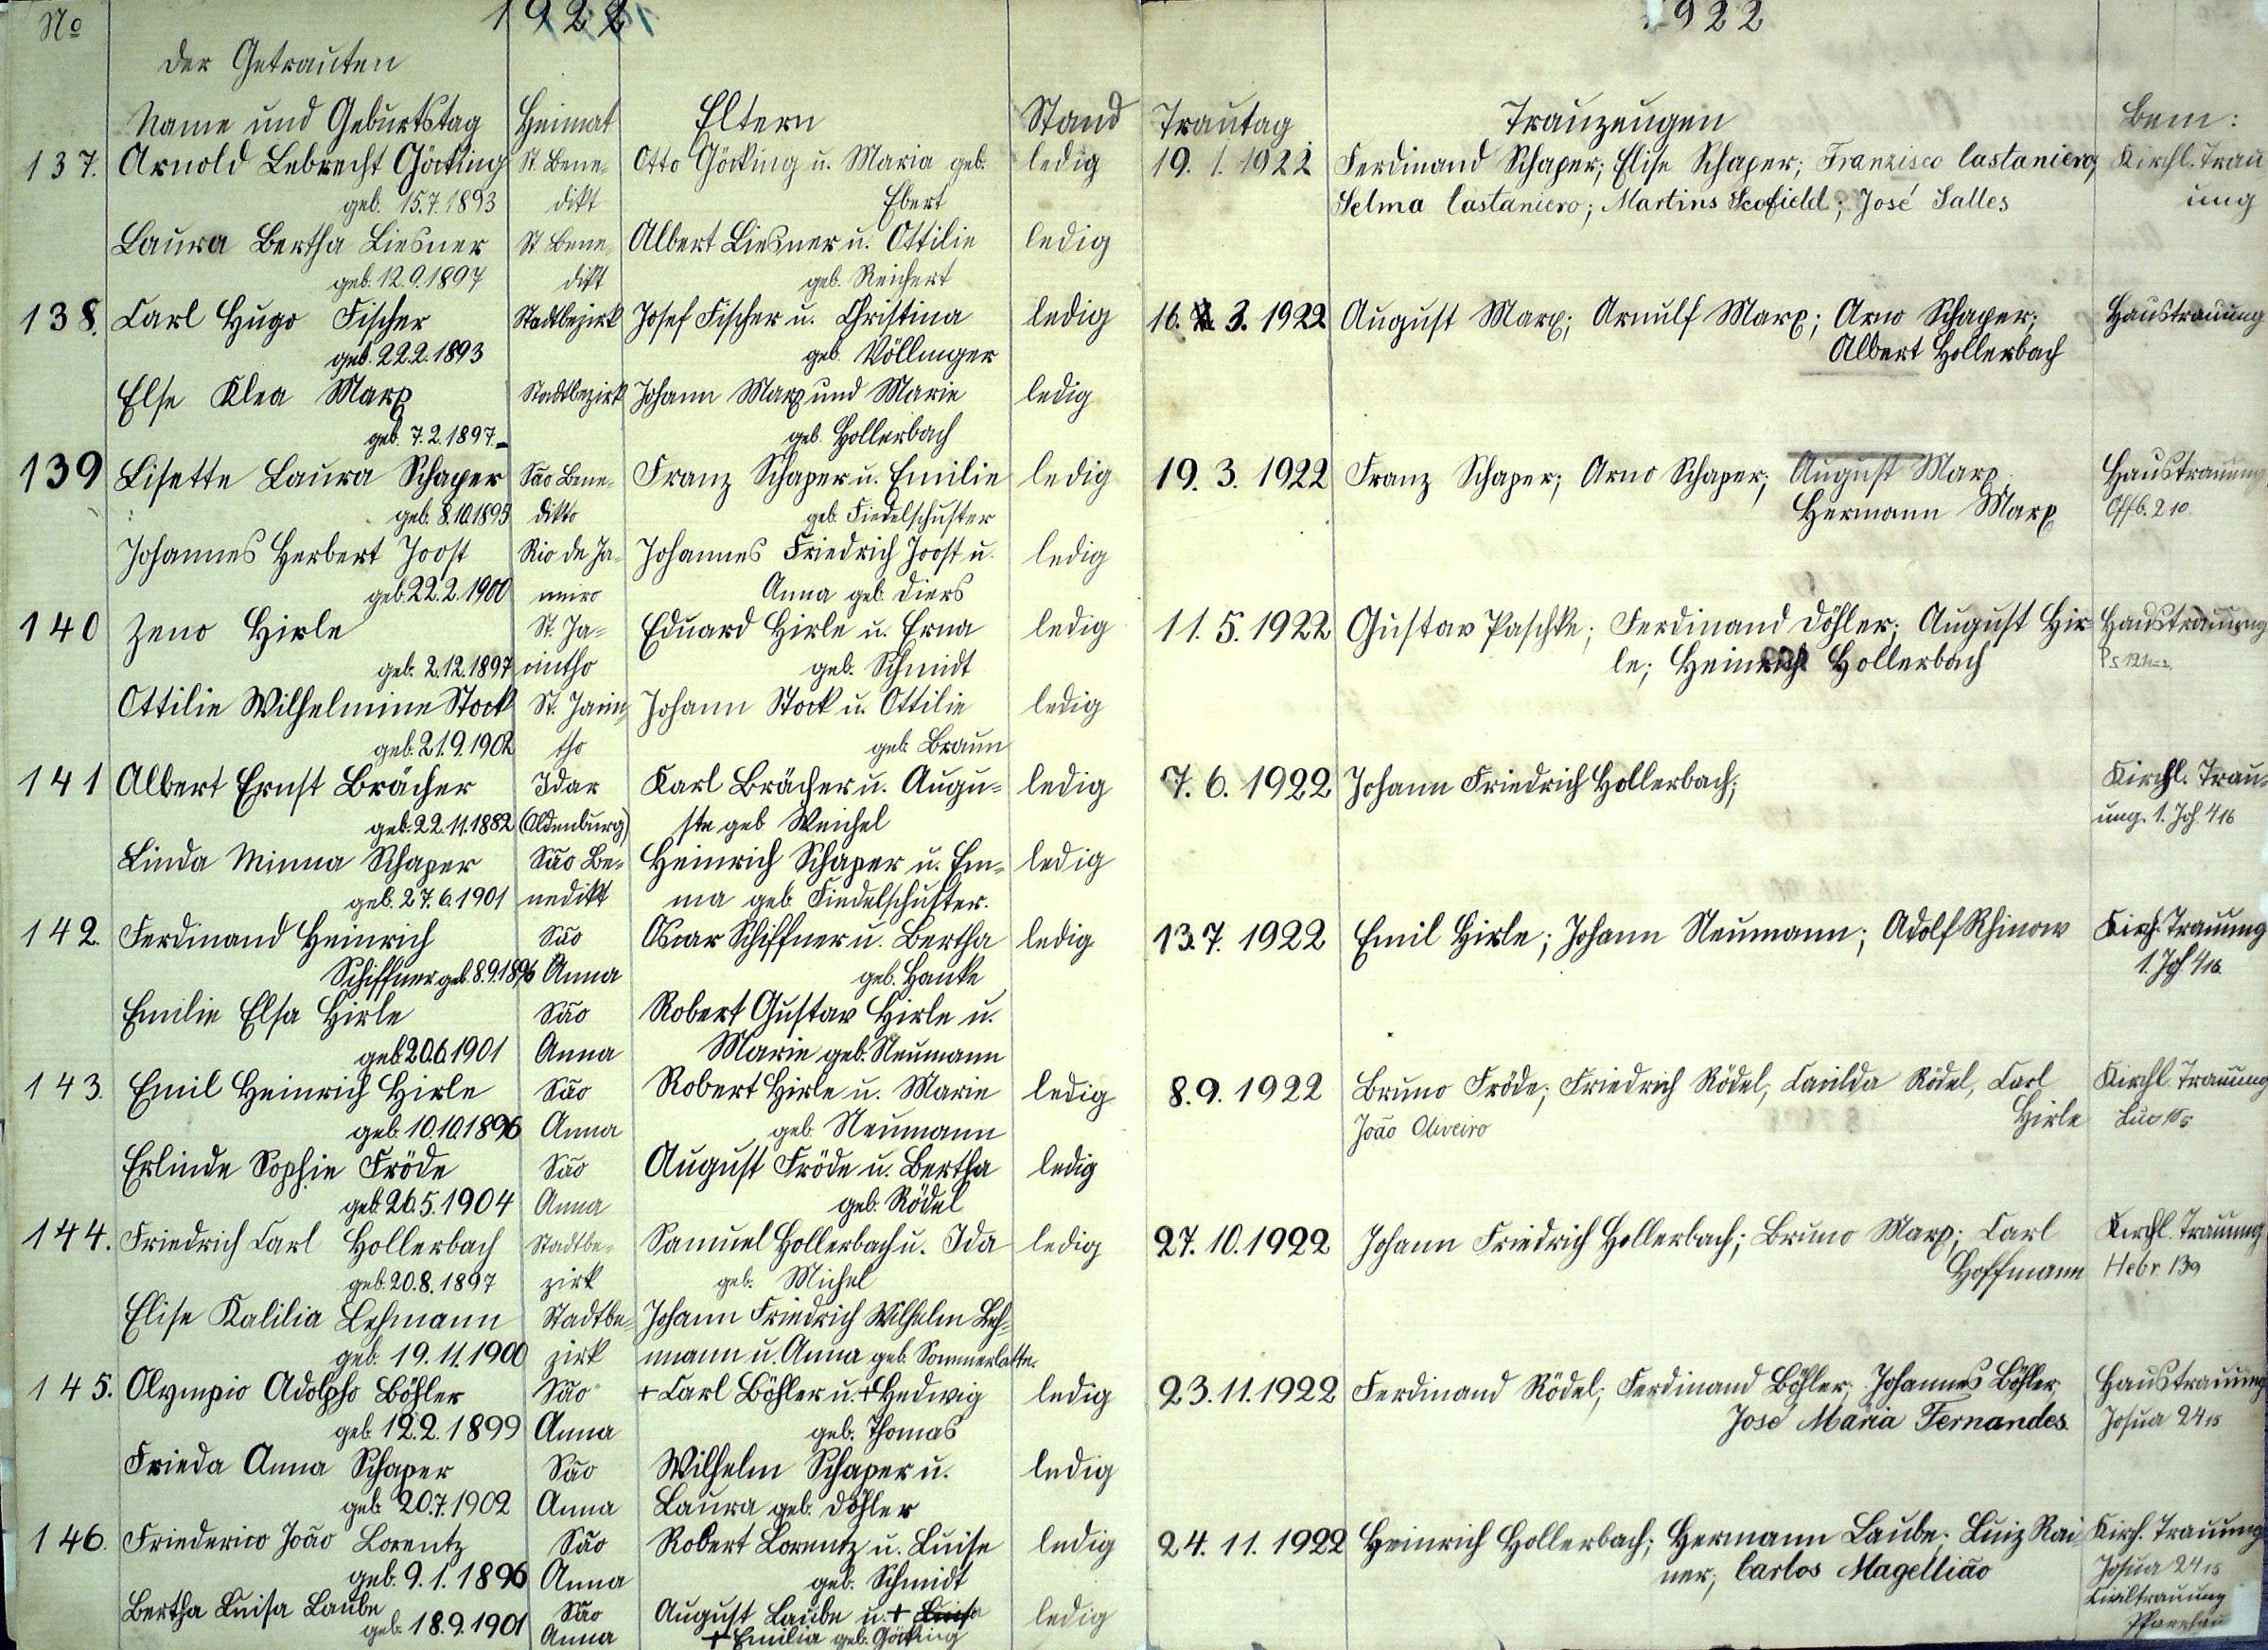 No 1922 1922
Der Getrauten
Name und Geburtstag Heimat Eltern Stand Trautag Trauzeugen Bem:
137. Arnold Lebrecht Göcking St. Bene- Otto Göcking u. Maria geb. ledig 19. 1. 1922 Ferdinand Schaper; Elise Schaper; Franzisco Castaniero; Kirchl. Trau
geb. 15.7.1893 dikt Ebert Selma Castaniero; Martins Scofield; José Salles ung
Laura Bertha Liesner St Bene- Albert Liesner u. Ottilie ledig
geb. 12.9.1897 dikt geb. Reichert
138. Carl Hugo Fischer Stadtbezirk Josef Fischer u. Christina ledig 16. 3. 1922 August Marx; Arnulf Marx; Arno Schaper; Haustrauung
geb. 22.2.1893 geb. Völlinger Albert Hollerbach
Else Klea Marx Stadtbezirk Johann Marx und Marie ledig
geb. 7.2.1897 geb. Hollerbach
139 Lisette Laura Schaper São Bene- Franz Schaper u. Emilie ledig 19. 3. 1922 Franz Schaper; Arno Schaper; August Marx Haustrauung
geb. 8.10.1895 dikto geb. Fiedelschuster Hermann Marx Offb. 2 10.
Johannes Herbert Joost Rio de Ja- Johannes Friedrich Joost u. ledig
geb. 22.2.1900 neiro Anna geb. Diers
140 Zeno Hirle St. Ja- Eduard Hirle u. Erna ledig 11. 5. 1922 Gustav Paschke; Ferdinand Döhler; August Hir- Haustrauung
geb. 2.12.1897 cintho geb. Schmidt le; Heinrich Hollerbach
Ottilie Wilhelmine Stock St. Jacin- Johann Stock u. Ottilie ledig
geb. 21.9.1902 tho geb. Braun
141 Albert Ernst Brächer Idar Karl Brächer u. Augu- ledig 7. 6. 1922 Johann Friedrich Hollerbach; Kirchl. Trau-
geb. 22.11.1882 (Oldenburg) ste geb Weichel ung. 1. Joh. 4 16
Linda Minna Schaper São Be- Heinrich Schaper u. Em- ledig
geb. 27.6.1901 nedikt ma geb. Fiedelschuster.
142. Ferdinand Heinrich São Oscar Schiffner u. Bertha ledig 13.7. 1922 Emil Hirle; Johann Neumann; Adolf Rhinow Kirch. Trauung
Schiffner geb. 8.9.1896 Anna geb. Hanke 1. Joh. 4 16.
Emilie Elsa Hirle São Robert Gustav Hirle u.
geb. 20.6.1901 Anna Marie geb. Neumann
143. Emil Heinrich Hirle São Robert Hirle u. Marie ledig 8. 9. 1922 Bruno Fröde; Friedrich Rödel, Canilda Rödel, Carl Kirchl Trauung
geb. 10.10.1896 Anna geb. Neumann João Oliveiro Hirle
Erlinde Sophie Fröde São August Fröde u. Bertha ledig
geb. 26.5.1904 Anna geb. Rödel
144. Friedrich Carl Hollerbach Stadtbe- Samuel Hollerbach u. Ida ledig 27. 10. 1922 Johann Friedrich Hollerbach; Bruno Marx; Carl Kirchl. Trauung
geb. 20.8.1897 zirk geb. Michel Hoffmann Hebr. 13 9
Elise Kalilia Lehmann Stadtbe- Johann Friedrich Wilhelm Leh-
geb. 19.11.1900 zirk mann u. Anna geb. Sommerlatte.
145. Olympio Adolpho Böhler São + Carl Böhler u. + Hedwig ledig 23. 11. 1922 Ferdinand Rödel; Ferdinand Böhler; Johannes Böhler, Haustrauung
geb. 12.2.1899 Anna geb. Thomas José Maria Fernandes Josua 24 15
Frieda Anna Schaper São Wilhelm Schaper u. ledig
geb. 20.7.1902 Anna Laura geb. Döhler
146. Friederico João Lorentz São Robert Lorentz u. Luise ledig 24. 11. 1922 Heinrich Hollerbach; Hermann Laube; Luiz Rai- Kirch. Trauung
geb. 9.1.1896 Anna geb. Schmidt ner; Carlos Magellião Josua 24 15
Bertha Luisa Laube São August Laube u. + Luisa ledig Civiltrauung
geb. 18.9.1901 Anna + Emilia geb. Göcking